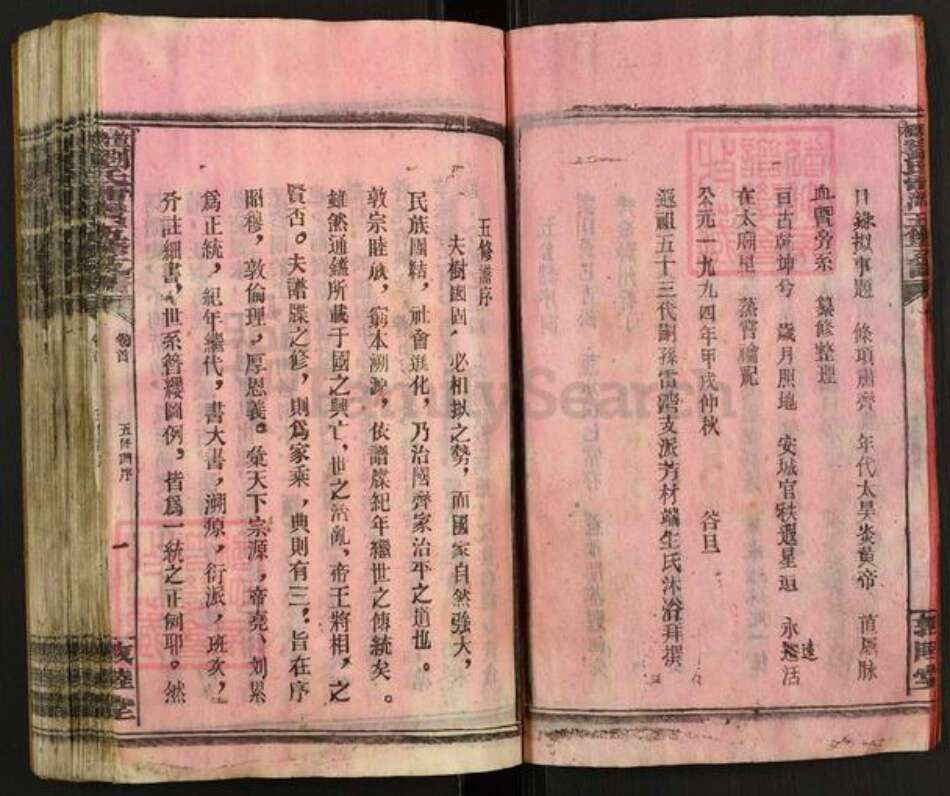 目錄拟事題 條項肅齊 年代太昊炎黃帝 直屬脉
血暨旁系 纂修整理
亘古乾坤兮 歲月照地 安城官秩遐星逗 永遠活
在太廟里 蒸嘗禴配
公元一九九四年甲戌仲秋 谷旦
遥祖五十三代嗣孫雷湾支派芳材端生氏沐浴拜撰
敦睦堂
五修譜序
夫樹國固，必相拟之勢，而國家自然強大，
民族團結，社會進化，乃治國齊家治平之道也。
敦宗睦族，窮本溯源，依譜牒紀年繼世之傳統矣。
雖然通鑑所載于國之興亡，世之治亂，帝王將相，之
賢否。夫譜牒之修，則爲家乘，典則有三。旨在序
昭穆，敦倫理，厚恩義。彙天下宗源，帝堯、刘累
爲正統，紀年繼代，書大書，溯源，衍派，班次，
分註細書，世系簪纓圖例，皆爲一統之正例耶。然
卷首
五修譜序
一
敦睦堂
FamilySearch